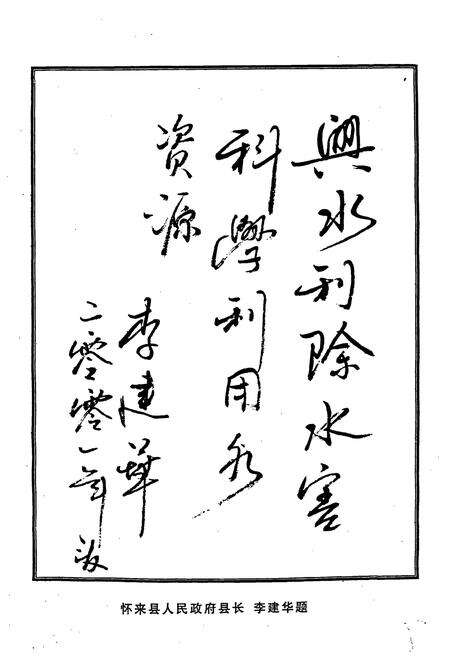 興水利除水害
科學利用水
資源
李建華
二零零一年
怀来县人民政府县长 李建华题